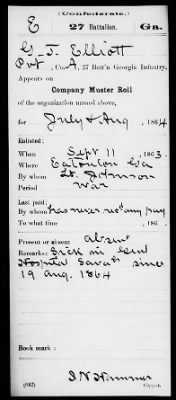 (Confederate.)
E 27 Battalion. Ga.
G. J. Elliott
Pvt, Co. A, 27 Batt'n Georgia Infantry.
Appears on
Company Muster Roll
of the organization named above,
for July & Aug, 1864
Enlisted:
When Sept 11, 1863.
Where Eatonton Ga
By whom Lt. Johnson
Period War
Last paid:
By whom has never rec'd any pay
To what time , 186 .
Present or absent absent
Remarks: Sick in Genl
Hospital Savah since
19 Aug. 1864
Book mark:
(642) Copyist.